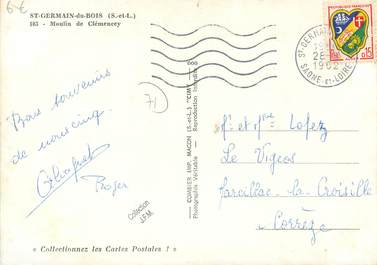 6€
ST-GERMAIN-du-BOIS (S.-et-L.)
183 - Moulin de Clémencey
ST GERMAIN
1962
SAONE-ET-LOIRE
0,15
71
Bons souvenirs
de nous cinq.
Roger
Collection
J.F.M.
COMBIER IMP. MACON (S.-et-L.) "CIM"
Photographie Véritable - Reproduction Interdite
Mr et Mme Lopez
Le Vigeos
Marcillac-la-Croisille
Corrèze
« Collectionnez les Cartes Postales ! »